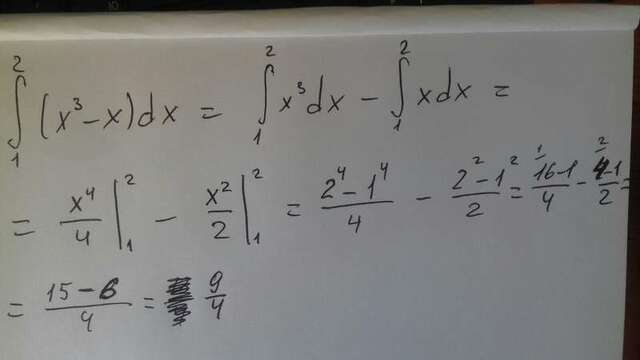 ∫₁² (x³ − x) dx = ∫₁² x³ dx − ∫₁² x dx =
= x⁴/4 |₁² − x²/2 |₁² = (2⁴ − 1⁴)/4 − (2² − 1²)/2 = ¹(16−1)/4 − ²(4−1)/2 =
= (15 − 6)/4 = 9/4